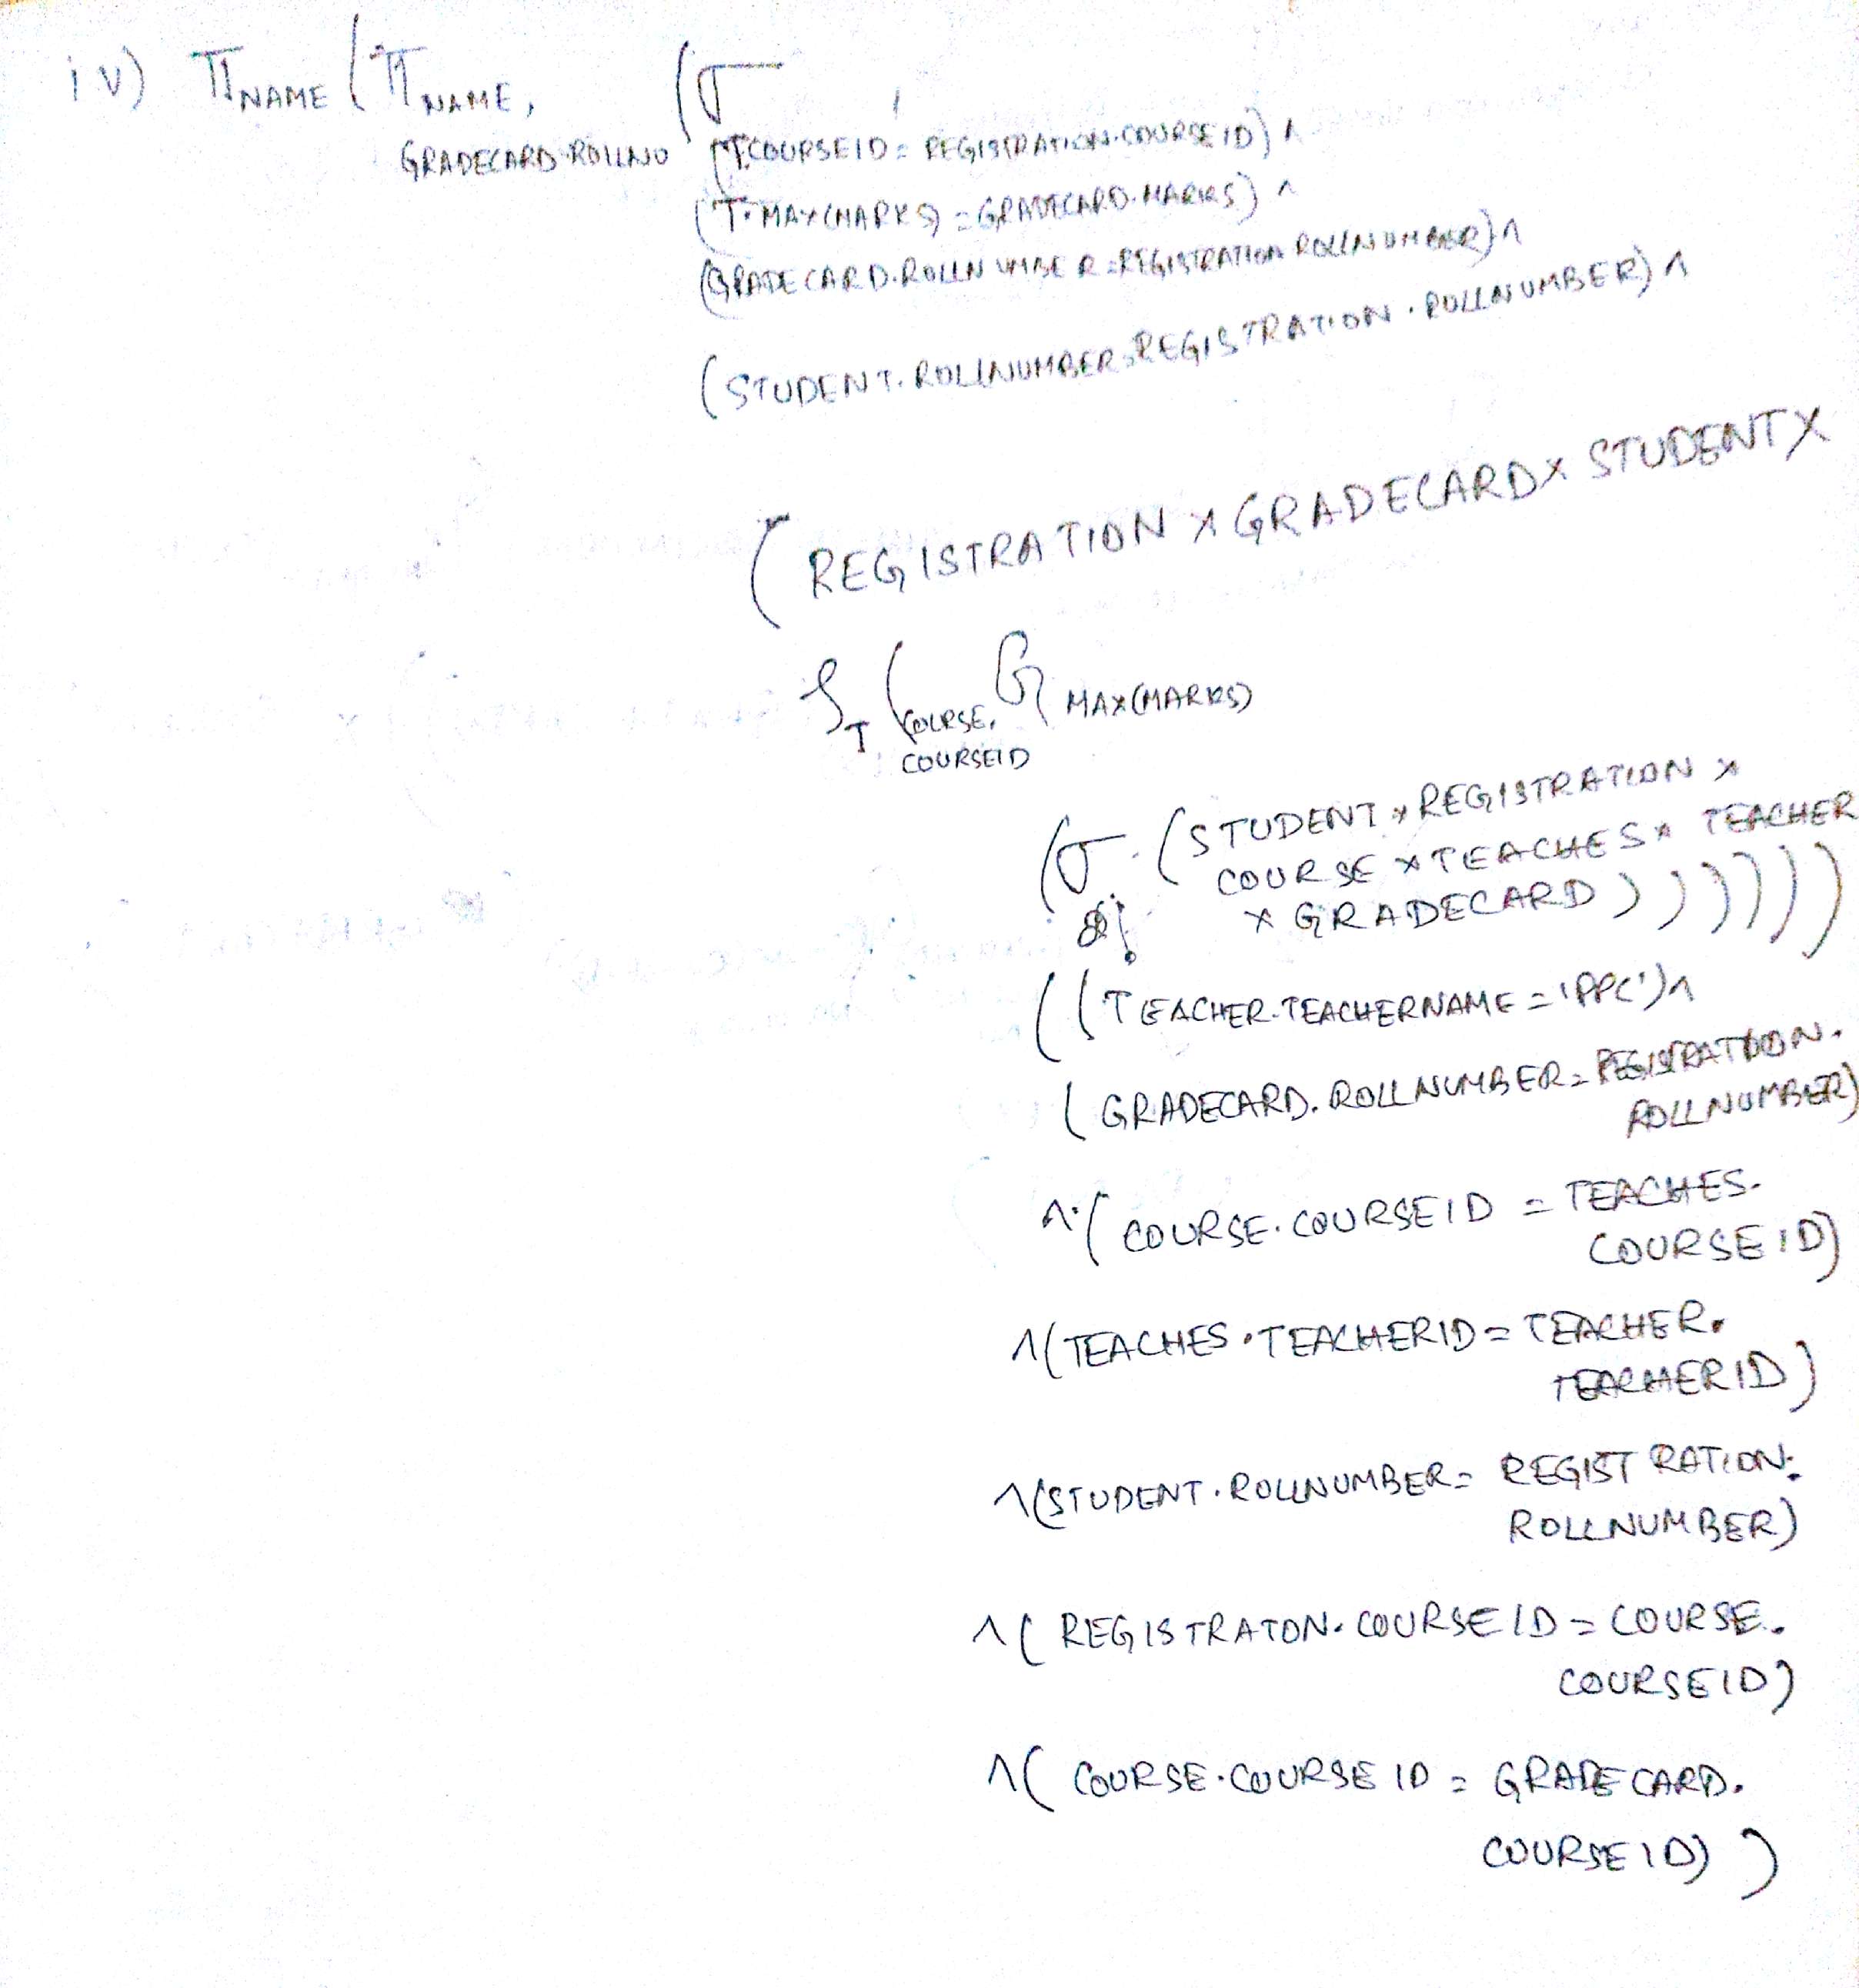 iv) π NAME ( π NAME, (σ
GRADECARD.ROLLNO
(T.COURSEID = REGISTRATION.COURSEID) ∧
(T.MAX(MARKS) = GRADECARD.MARKS) ∧
(GRADECARD.ROLLNUMBER = REGISTRATION ROLLNUMBER) ∧
(STUDENT.ROLLNUMBER = REGISTRATION.ROLLNUMBER) ∧
( REGISTRATION × GRADECARD × STUDENT ×
ρ T ( COURSE. G MAX(MARKS)
COURSEID
(σ (STUDENT × REGISTRATION ×
COURSE × TEACHES × TEACHER
× GRADECARD ) ) ) ) ) )
((TEACHER.TEACHERNAME = 'PPC') ∧
( GRADECARD.ROLLNUMBER = REGISTRATION.
ROLLNUMBER)
∧ ( COURSE.COURSEID = TEACHES.
COURSEID)
∧(TEACHES.TEACHERID = TEACHER.
TEACHERID)
∧(STUDENT.ROLLNUMBER = REGISTRATION.
ROLLNUMBER)
∧( REGISTRATON.COURSEID = COURSE.
COURSEID)
∧( COURSE.COURSEID = GRADECARD.
COURSEID) )